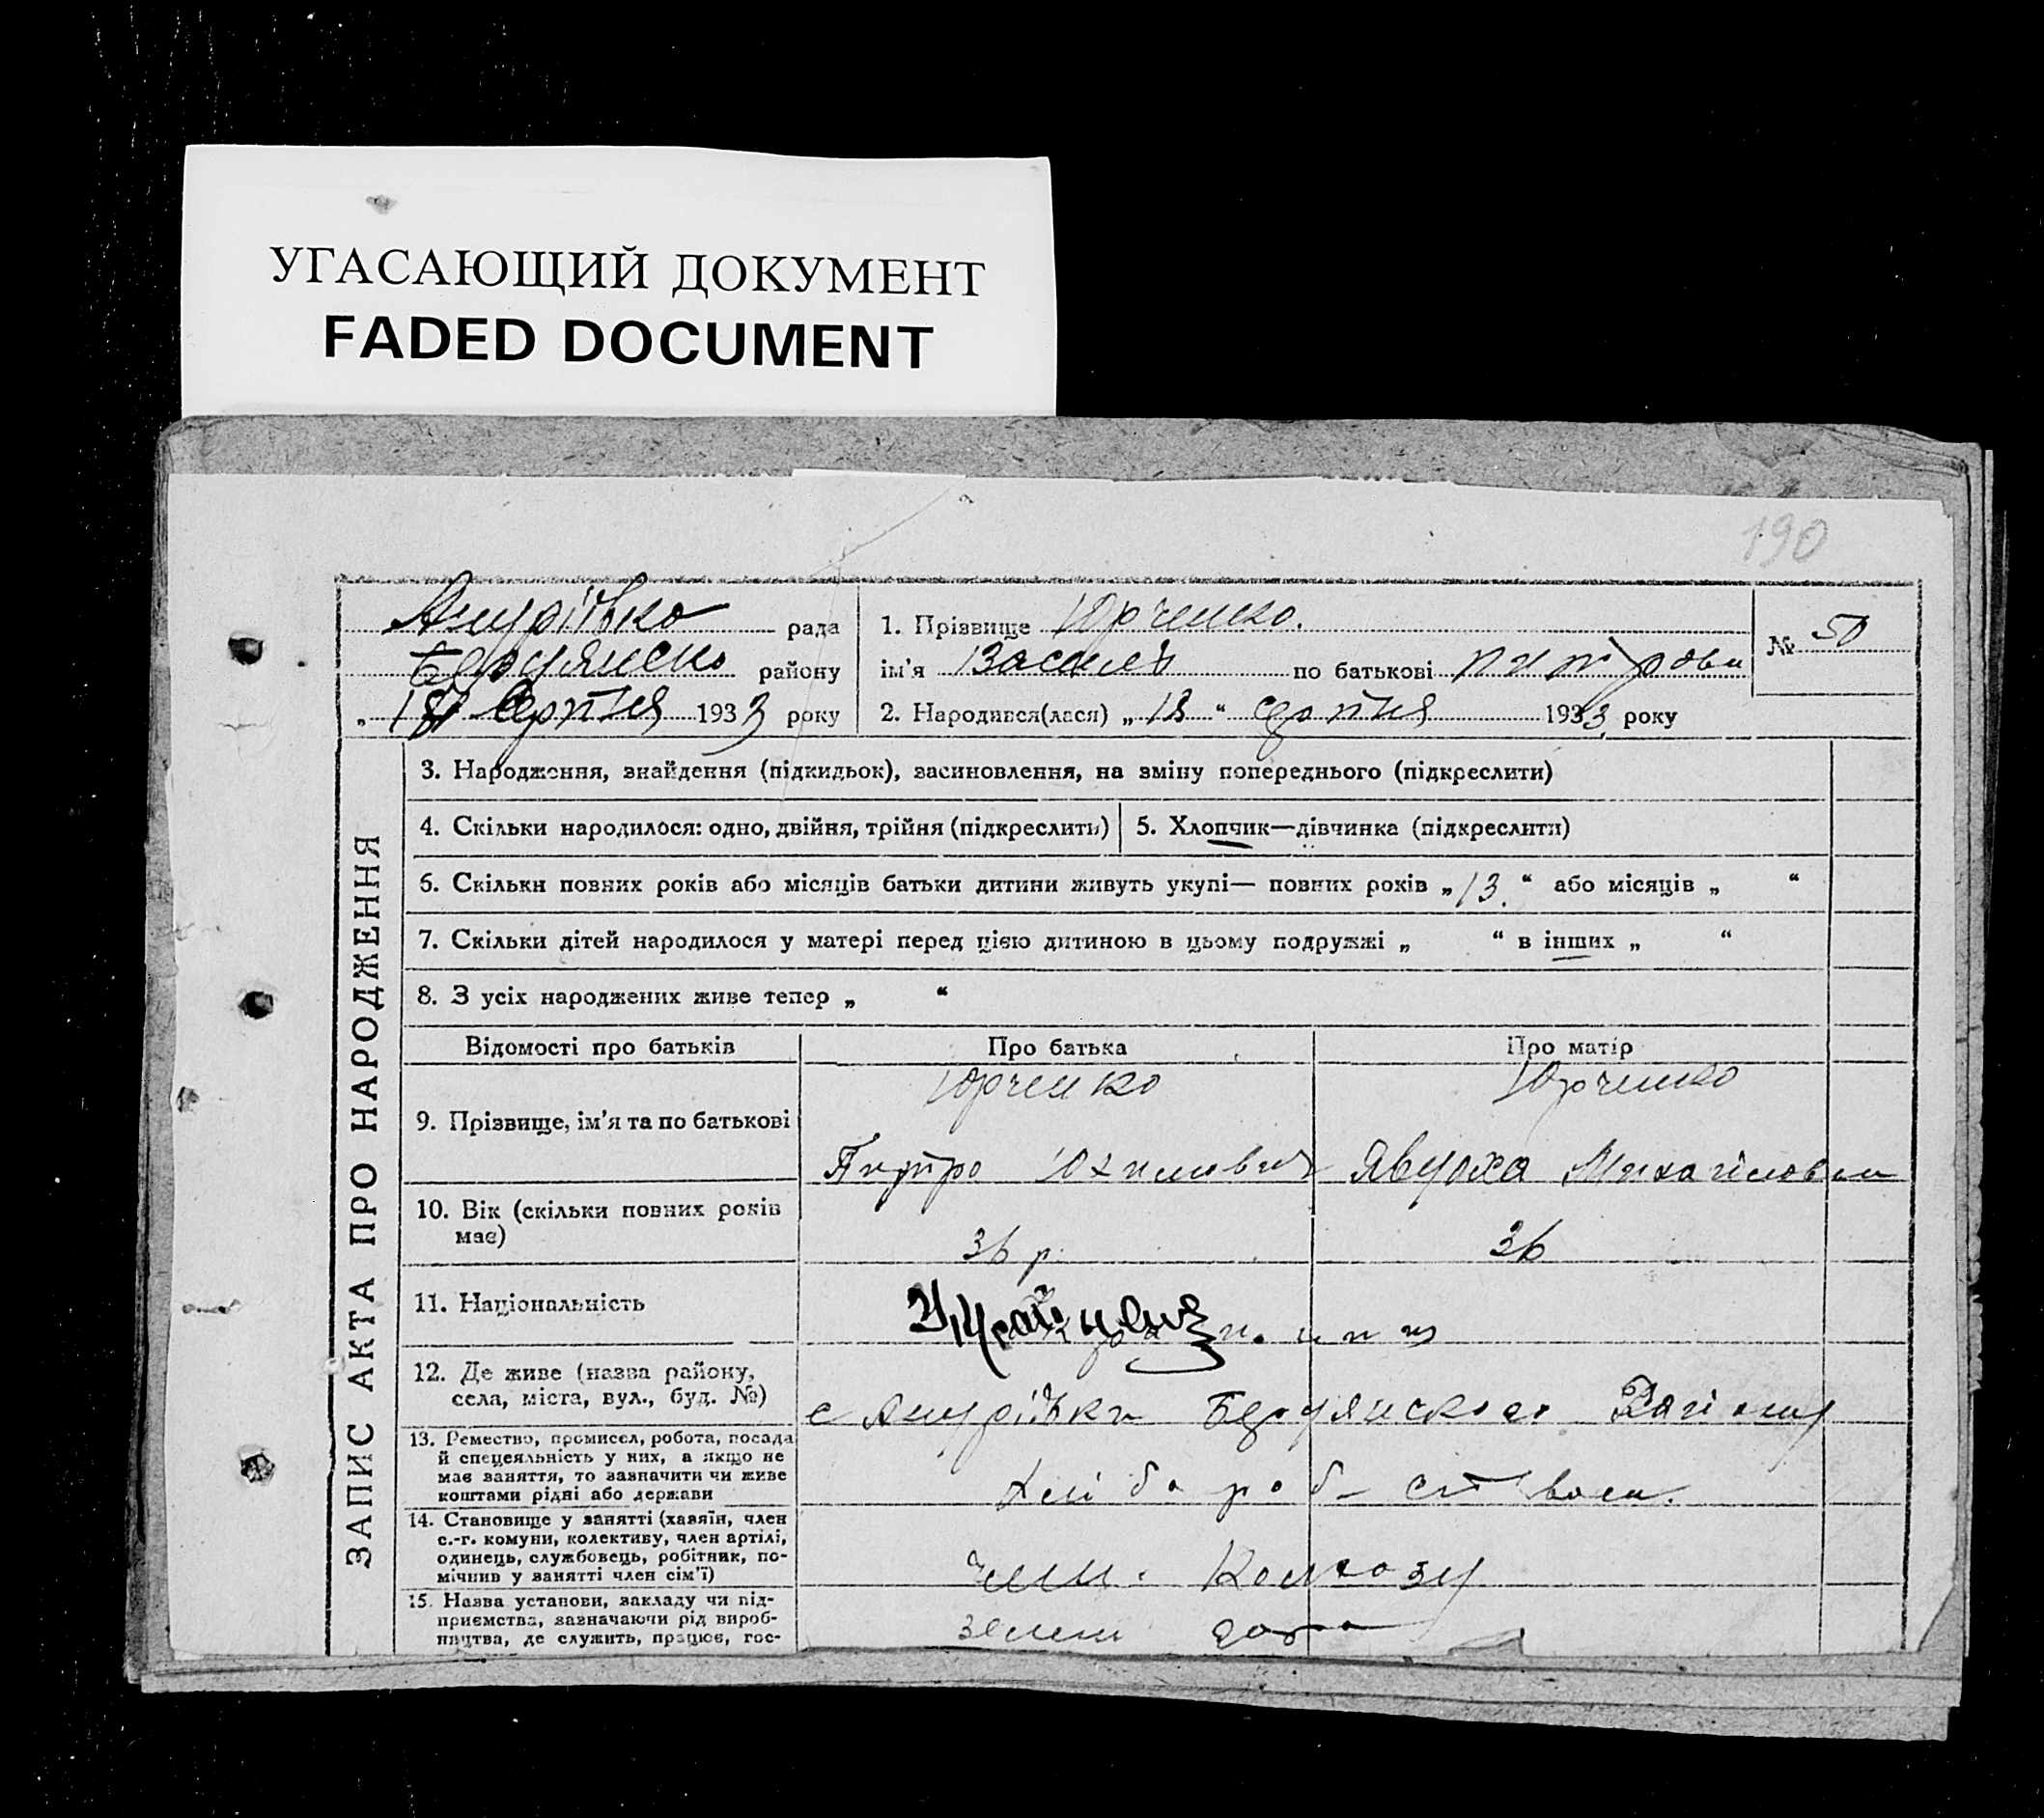 УГАСАЮЩИЙ ДОКУМЕНТ
FADED DOCUMENT
190
Андріївко рада
Бердянско району
„ 18 Серпня 1933 року
1. Прізвище Юрченко.
ім'я Василь по батькові питрови
2. Народився(лася) „ 13 “ серпня 1933 року
№ 50
ЗАПИС АКТА ПРО НАРОДЖЕННЯ
3. Народження, знайдення (підкидьок), засиновлення, на зміну попереднього (підкреслити)
4. Скільки народилося: одно, двійня, трійня (підкреслить)
5. Хлопчик—дівчинка (підкреслити)
6. Скільки повних років або місяців батьки дитини живуть укупі— повних років „ 13. “ або місяців „ “
7. Скільки дітей народилося у матері перед цією дитиною в цьому подружжі „ “ в інших „ “
8. З усіх народжених живе тепер „ “
Відомості про батьків Про батька Про матір
9. Прізвище, ім'я та по батькові
Юрченко Юрченко
Питро Юхимович Явдоха Михайловна
10. Вік (скільки повних років
має)
36 р. 36
11. Національність
12. Де живе (назва району,
села, міста, вул., буд. №)
с Андріівки Бердянского Району
13. Ремество, промисел, робота, посада
й спецеяльність у них, а якщо не
має заняття, то зазначити чи живе
коштами рідні або держави
Хлібаробство
14. Становище у занятті (хазяїн, член
с.-г. комуни, колективу, член артілі,
одинець, службовець, робітник, по-
мічнив у занятті член сім'ї)
член. Колгозу
15. Назва установи, закладу чи під-
приємства, зазначаючи рід вироб-
ництва, де служить, працює, гос-